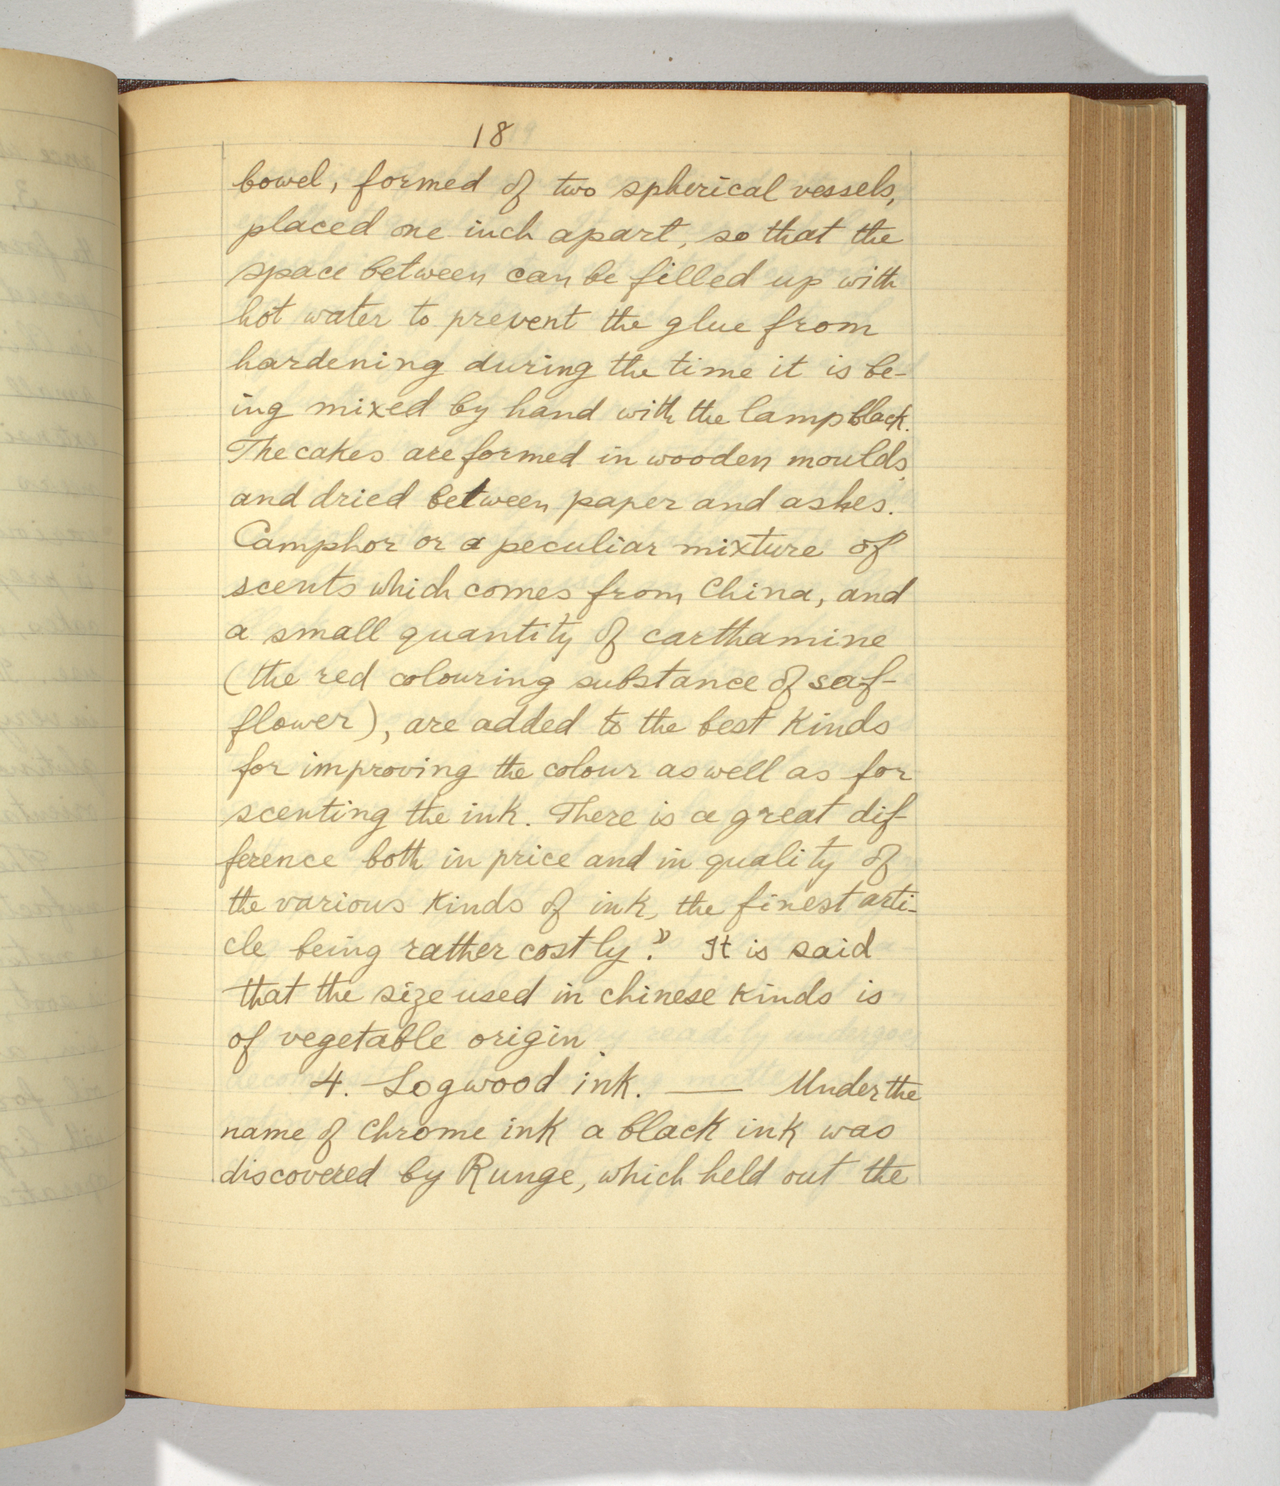 18
bowel, formed of two spherical vessels,
placed one inch apart, so that the
space between can be filled up with
hot water to prevent the glue from
hardening during the time it is be-
ing mixed by hand with the lampblack.
The cakes are formed in wooden moulds
and dried between paper and ashes.
Camphor or a peculiar mixture of
scents which comes from China, and
a small quantity of carthamine
(the red colouring substance of saf-
flower), are added to the best kinds
for improving the colour as well as for
scenting the ink. There is a great dif
ference both in price and in quality of
the various kinds of ink, the finest arti-
cle being rather costly." It is said
that the size used in chinese kinds is
of vegetable origin.
4. Logwood ink. — Under the
name of chrome ink a black ink was
discovered by Runge, which held out the